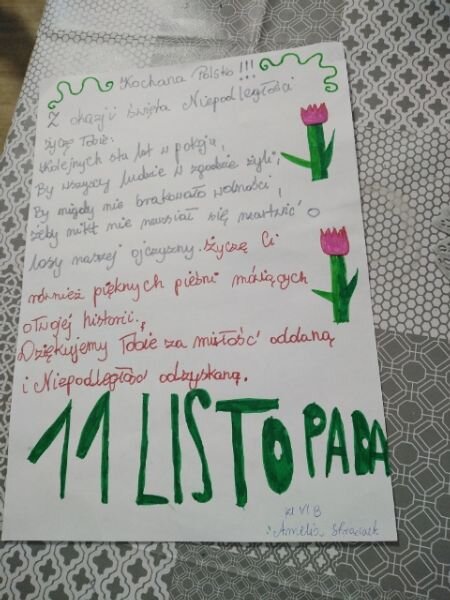 Kochana Polsko!!!
Z okazji święta Niepodległości
życzę Tobie:
kolejnych stu lat w pokoju,
By wszyscy ludzie w zgodzie żyli,
By nigdy nie brakowało wolności,
żeby nikt nie musiał się martwić o
losy naszej ojczyzny. życzę Ci
również pięknych pieśni mówiących
o Twojej historii.
Dziękujemy Tobie za miłość oddaną
i Niepodległość odzyskaną.
11 LISTOPADA
kl VI B
Amelia